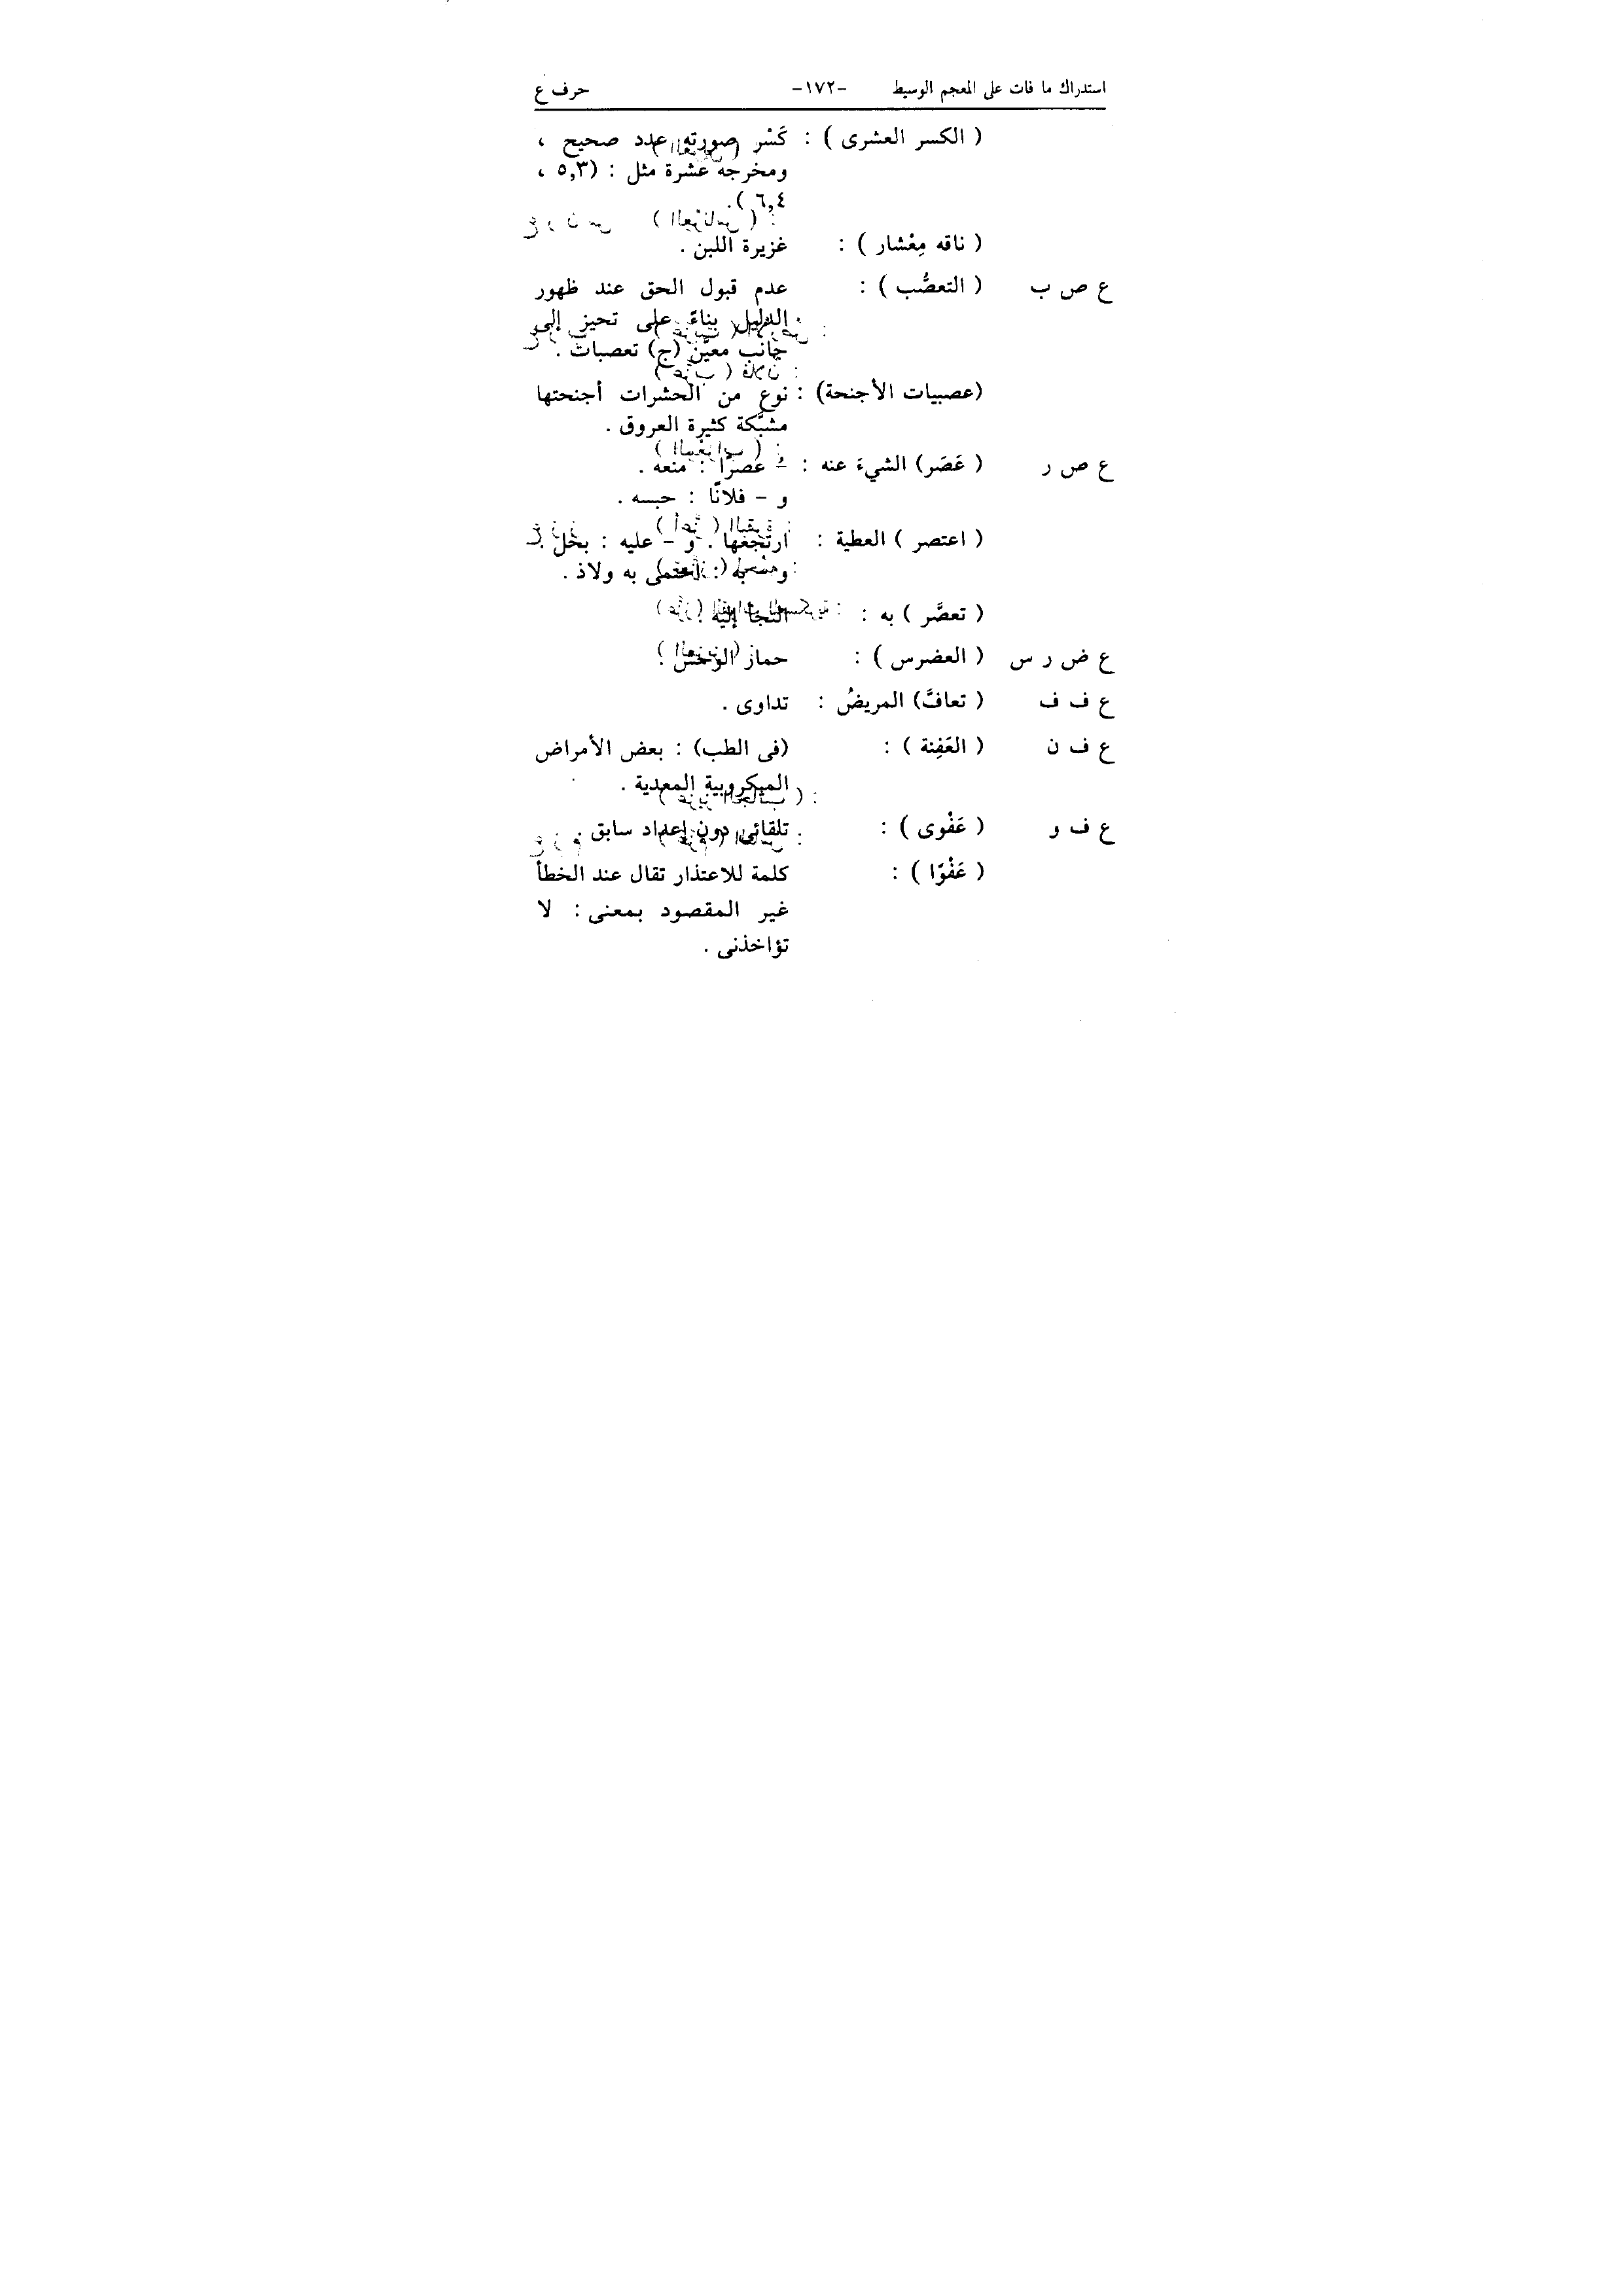 استدراك ما فات على المعجم الوسيط -١٧٢- حرف ع
( الكسر العشرى ) : كَسْر صورته عدد صحيح ،
ومخرجه عشرة مثل : (٥,٣ ،
٦,٤ ).
( ناقه مِعْشار ) : غزيرة اللبن .
ع ص ب ( التعصُّب ) : عدم قبول الحق عند ظهور
الدليل بناءً على تحيز إلى
جانب معيَّن (ج) تعصبات .
(عصبيات الأجنحة) : نوع من الحشرات أجنحتها
مشبَّكة كثيرة العروق .
ع ص ر ( عَصَر) الشيءَ عنه : - عصرًا : منعه .
و - فلانًا : حبسه .
( اعتصر ) العطية : ارتجعها . و - عليه : بخل .
و - به : احتمى به ولاذ .
( تعصَّر ) به : التجأ إليه .
ع ض ر س ( العضرس ) : حمار الوحش .
ع ف ف ( تعافَّ) المريضُ : تداوى .
ع ف ن ( العَفِنة ) : (فى الطب) : بعض الأمراض
الميكروبية المعدية .
ع ف و ( عَفْوى ) : تلقائى دون إعداد سابق .
( عَفْوًا ) : كلمة للاعتذار تقال عند الخطأ
غير المقصود بمعنى : لا
تؤاخذنى .